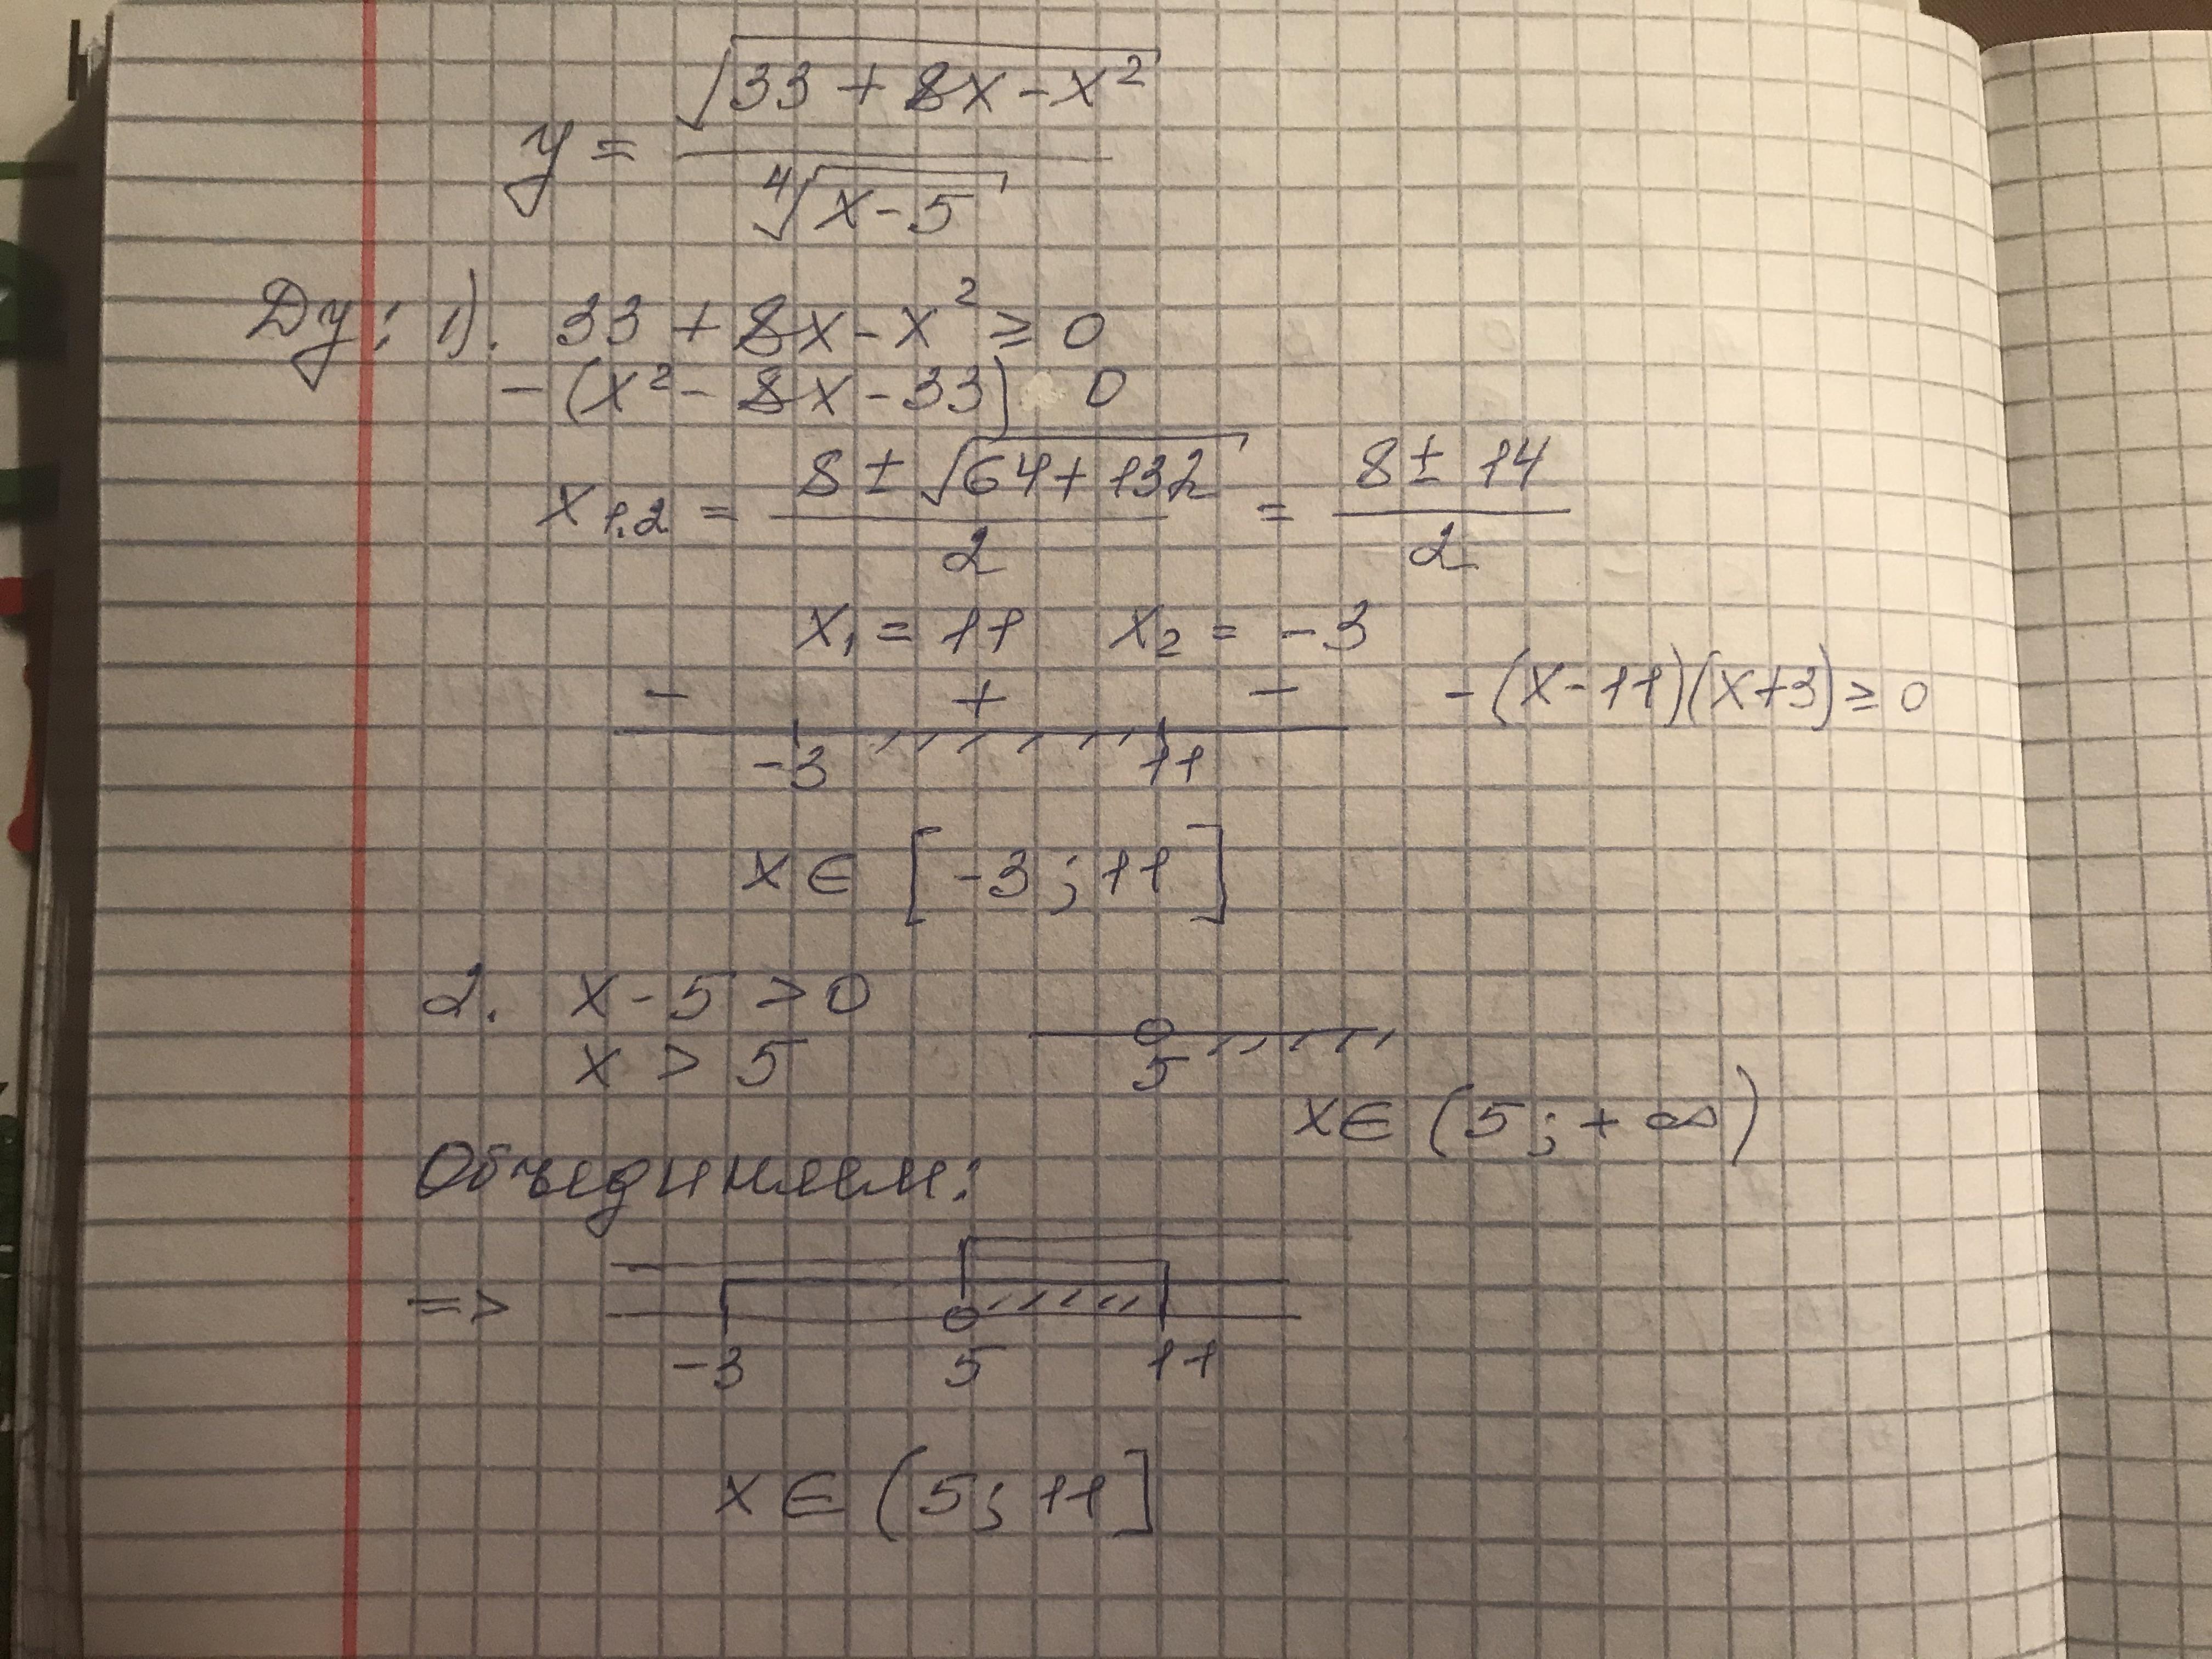 y = √(33 + 8x - x²) / ⁴√(x - 5)
Dy: 1). 33 + 8x - x² ≥ 0
- (x² - 8x - 33) 0
x₁,₂ = (8 ± √(64 + 132)) / 2 = (8 ± 14) / 2
x₁ = 11 x₂ = -3
- + - -(x-11)(x+3) ≥ 0
-3 11
x ∈ [-3; 11]
2. x - 5 > 0
x > 5 5
x ∈ (5; +∞)
Объединяем:
=> -3 5 11
x ∈ (5; 11]